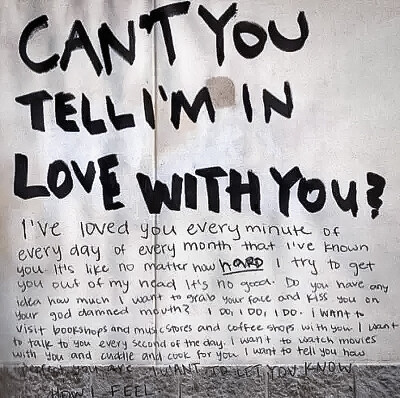 CAN'T YOU
TELL I'M IN
LOVE WITH YOU?
I've loved you every minute of
every day of every month that I've known
you. It's like no matter how HARD I try to get
you out of my head It's no good. Do you have any
idea how much I want to grab your face and kiss you on
your god damned mouth? I DO, I DO, I DO. I WANT to
visit bookshops and music stores and coffee shops with you. I want
to talk to you every second of the day. I want to watch movies
with you and cuddle and cook for you I want to tell you how
perfect you are. I WANT TO LET YOU KNOW
HOW I FEEL